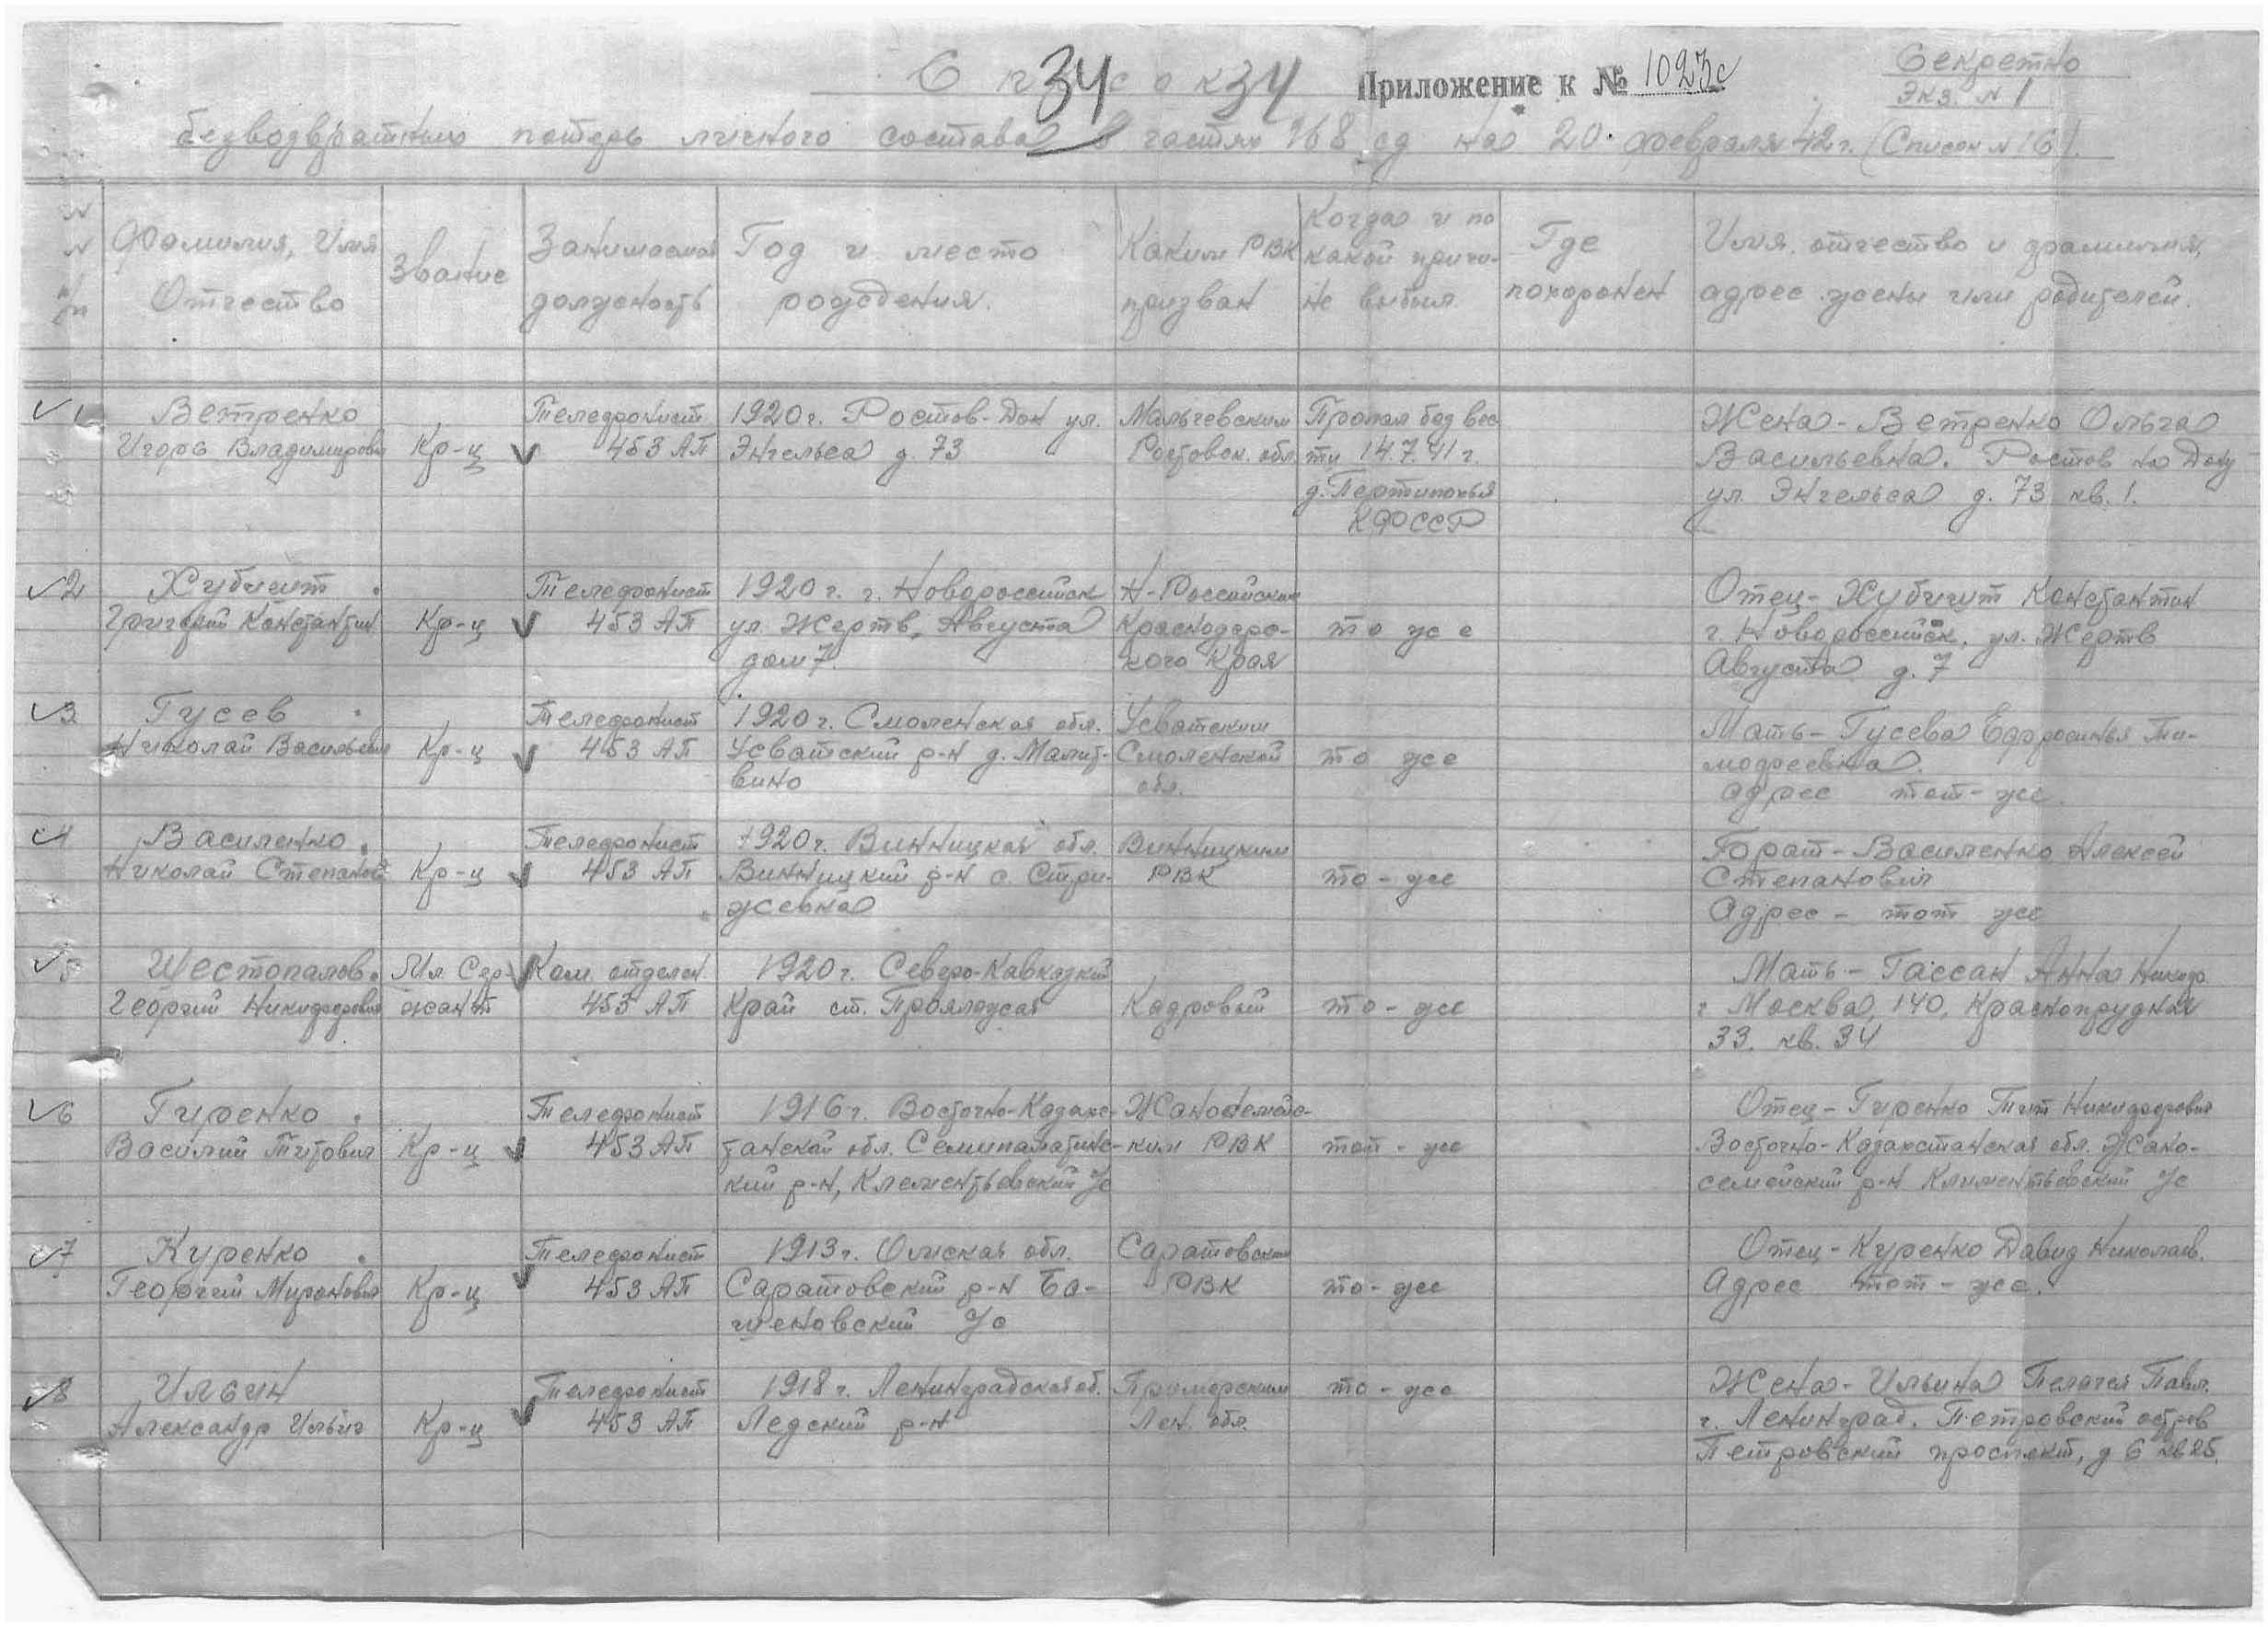 Секретно
Экз. N 1
Список 34 34 Приложение к № 1023с
безвозвратных потерь личного состава в частях 168 сд на 20 февраля 42 г. (Список N 16).
N N п/п
Фамилия, Имя Отчество
Звание
Занимаемая должность
Год и место рождения.
Каким РВК призван
Когда и по какой причине выбыл
Где похоронен
Имя, отчество и фамилия, адрес жены или родителей.
1 Ветренко Телефонист 1920 г. Ростов-Дон ул. Мальчевским Пропал без вес- Жена - Ветренко Ольга
Игорь Владимирович Кр-ц 453 АП Энгельса д. 73 Ростовск. обл. ти 14.7.41 г. Васильевна. Ростов на Дону
д. Пертипохья ул. Энгельса д. 73 кв. 1.
КФССР
2 Хубиит Телефонист 1920 г. г. Новороссийск Н-Российским Отец - Хубиит Константин
Григорий Константин Кр-ц 453 АП ул. Жертв, Августа Краснодарс- то же г. Новороссийск, ул. Жертв
дом 7. кого Края Августа д. 7
3 Гусев Телефонист 1920 г. Смоленская обл. Усватским Мать - Гусева Ефросинья Ти-
Николай Васильевич Кр-ц 453 АП Усватский р-н д. Малит- Смоленской то же мофеевна.
вино обл. адрес тот-же.
4 Василенко Телефонист 1920 г. Винницкая обл. Винницким Брат - Василенко Алексей
Николай Степанов Кр-ц 453 АП Винницкий р-н с. Стри- РВК то-же Степанович
жевка Адрес - тот же
5 Шестопалов Мл Сер- Ком. отделен. 1920 г. Северо-Кавказкий Мать - Гассан Анна Никиф.
Георгий Никифорович жант 453 АП Край ст. Прохладная Кадровый то-же г Москва, 140, Краснопрудная
33. кв. 34
6 Гиренко Телефонист 1916 г. Восточно-Казахс- Жаносемейс- Отец - Гиренко Тит Никифорович
Василий Титович Кр-ц 453 АП танской обл. Семипалатинс- ким РВК тот-же Восточно-Казахстанская обл. Жано-
кий р-н, Клементьевский /с семейский р-н Климентьевский /с
7 Куренко Телефонист 1913 г. Омская обл. Саратовским Отец - Куренко Давид Николаев.
Георгий Миронович Кр-ц 453 АП Саратовский р-н Ба- РВК то-же Адрес тот-же.
шеновский /с
8 Ильин Телефонист 1918 г. Ленинградская об. Приморским то-же Жена - Ильина Пелагея Павл.
Александр Ильич Кр-ц 453 АП Ледский р-н Лен. обл. г. Ленинград. Петровский остров
Петровский проспект, д 6 кв 25.